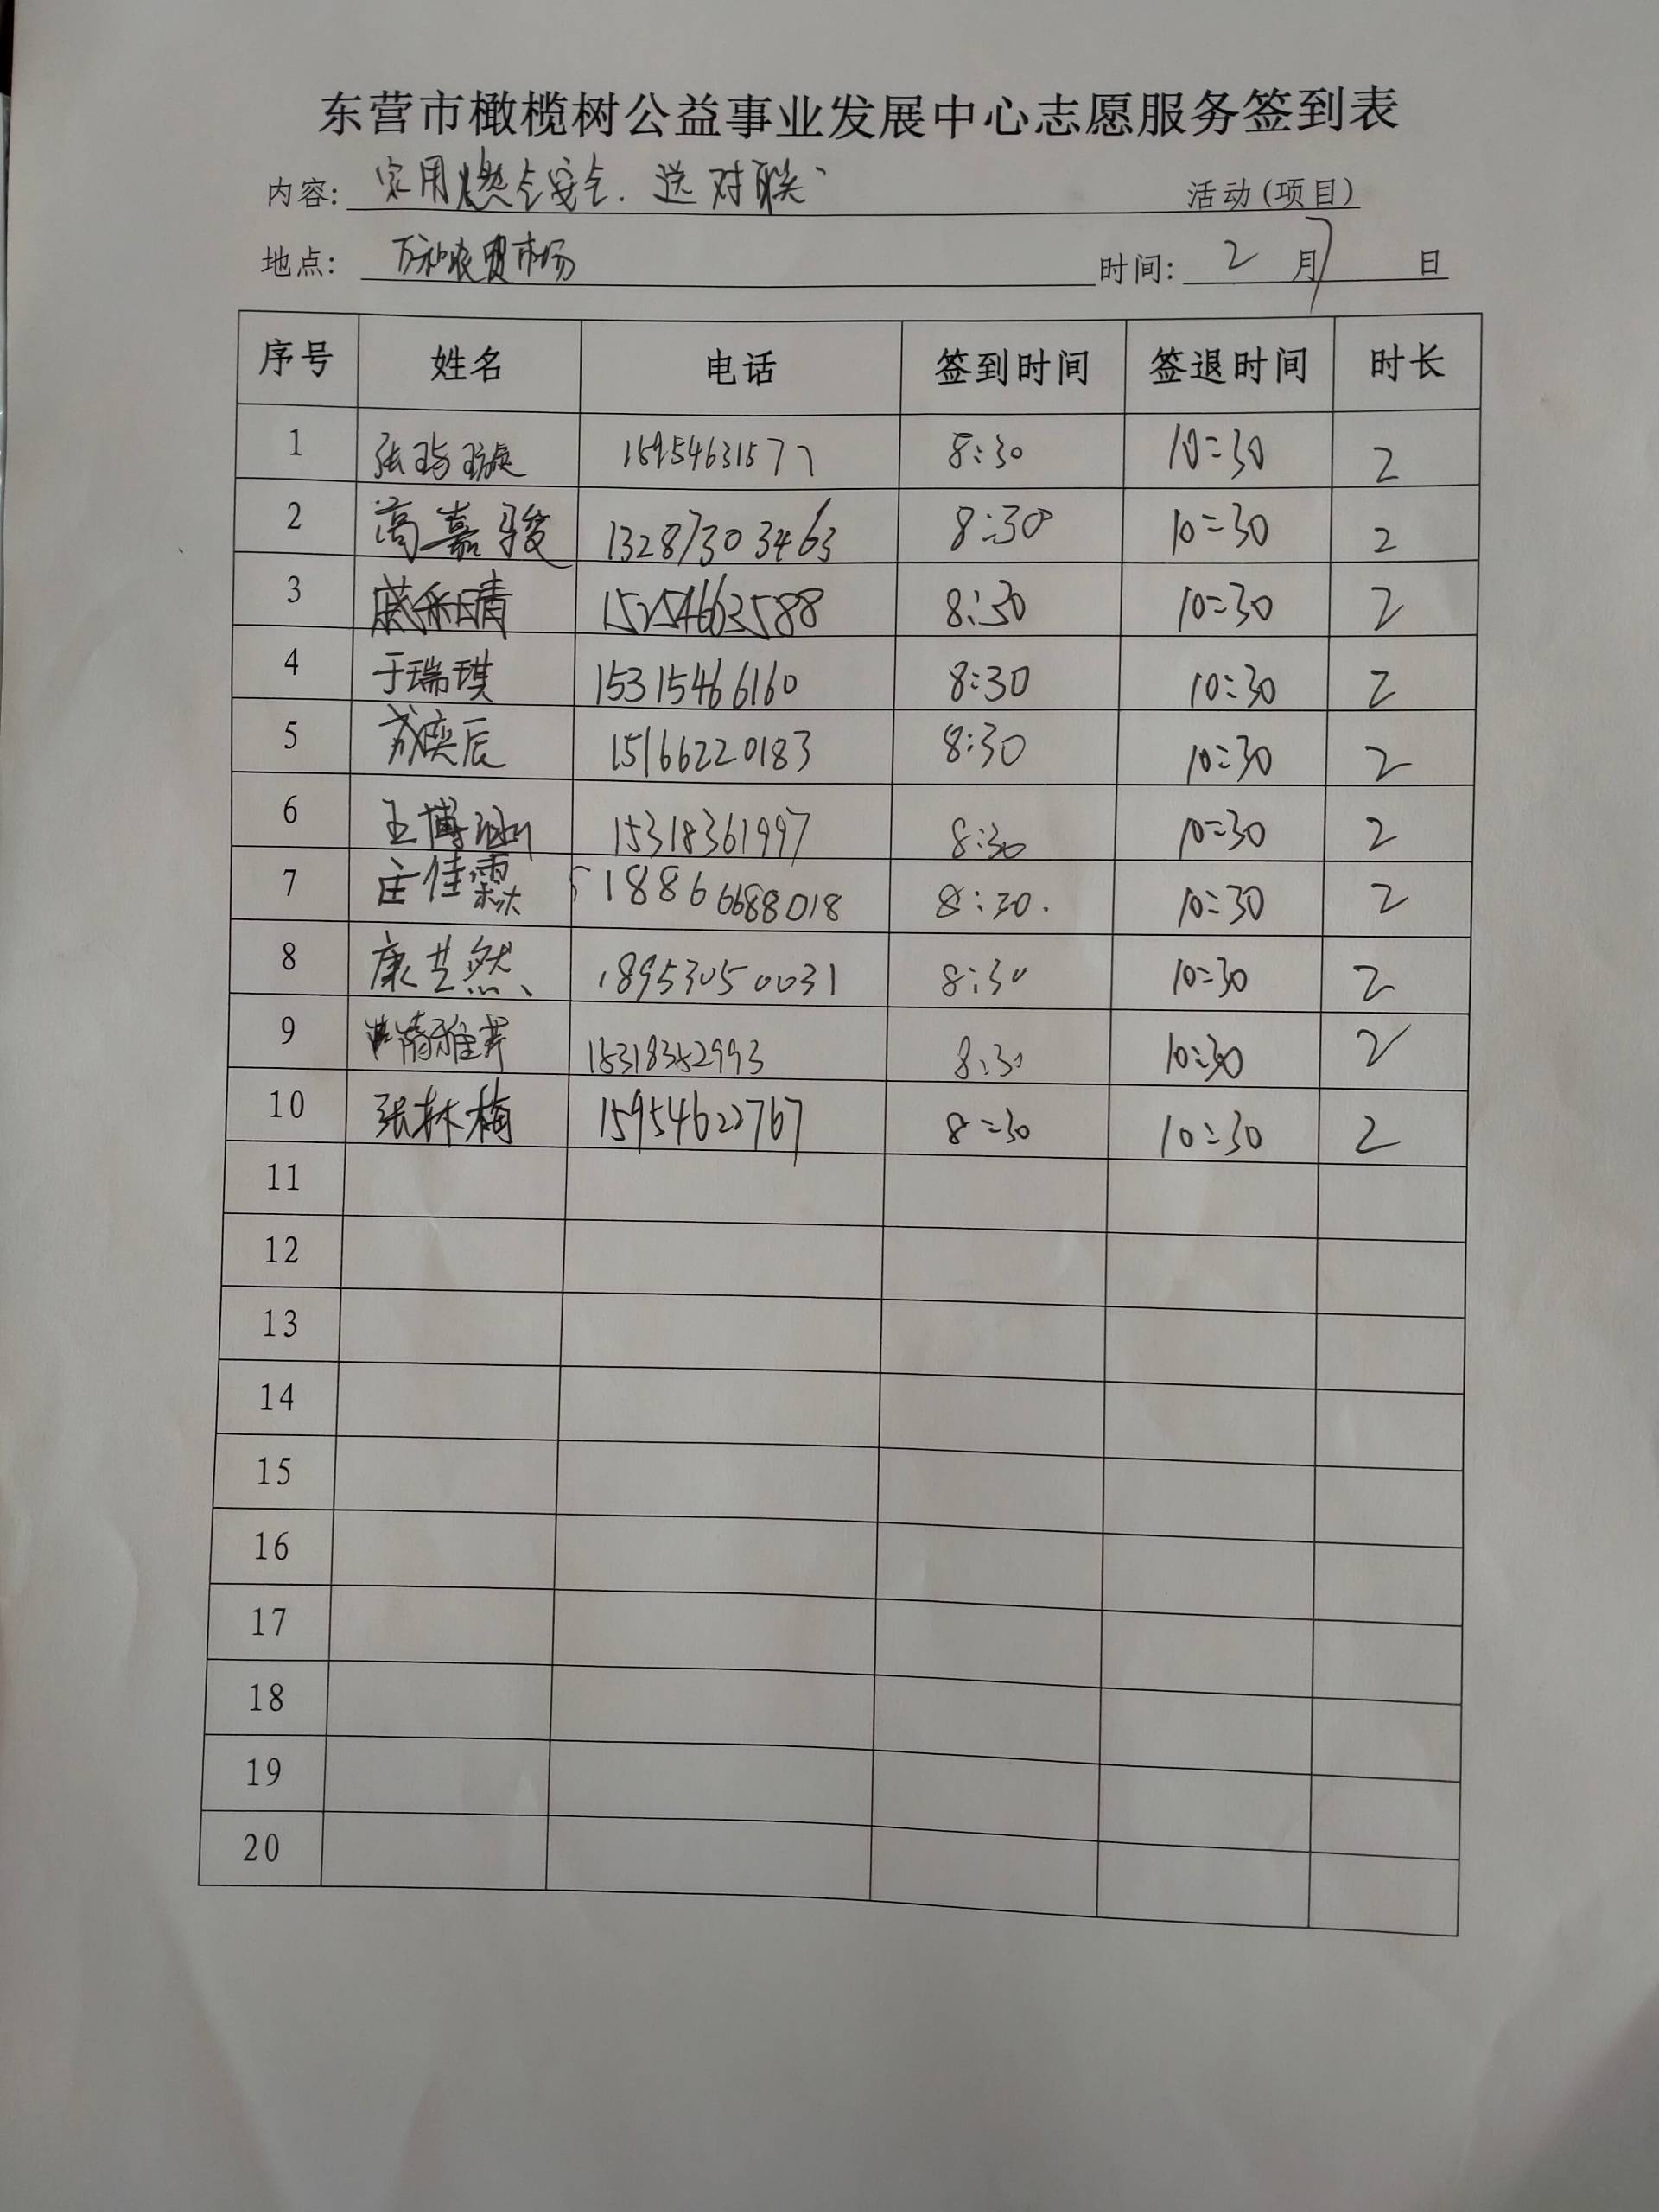 东营市橄榄树公益事业发展中心志愿服务签到表
内容: 家用燃气安全.送对联 活动(项目)
地点: 万和农贸市场 时间: 2 月 7 日
序号 姓名 电话 签到时间 签退时间 时长
1 张玙璇 15954631577 8:30 10:30 2
2 高嘉骏 13287303463 8:30 10:30 2
3 戚禾晴 15254663588 8:30 10:30 2
4 于瑞琪 15315466160 8:30 10:30 2
5 奕辰 15166220183 8:30 10:30 2
6 王博涵 15318361997 8:30 10:30 2
7 庄佳霖 18866688018 8:30. 10:30 2
8 康芷然、 18953050031 8:30 10:30 2
9 8:30 10:30 2
10 张林梅 15954622767 8:30 10:30 2
11
12
13
14
15
16
17
18
19
20